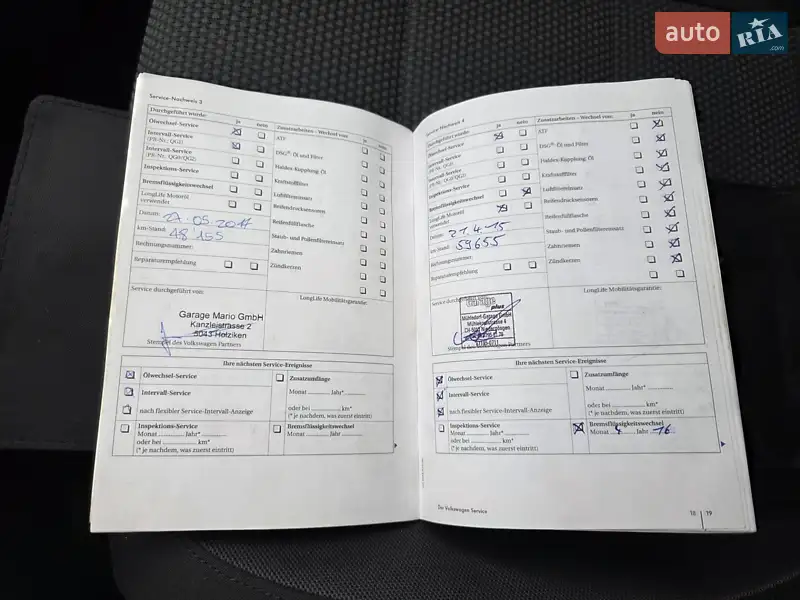 auto RIA .com
Service-Nachweis 3
Durchgeführt wurde: ja nein
Ölwechsel-Service
Intervall-Service
(PR-Nr.: QG1)
Intervall-Service
(PR-Nr.: QG0/QG2)
Inspektions-Service
Bremsflüssigkeitswechsel
LongLife Motoröl
verwendet
Datum:
km-Stand: 48 155
Rechnungsnummer:
Reparaturempfehlung
Zusatzarbeiten - Wechsel von: ja nein
ATF
DSG®-Öl und Filter
Haldex-Kupplung Öl
Kraftstofffilter
Luftfiltereinsatz
Reifendrucksensoren
Reifenfüllflasche
Staub- und Pollenfiltereinsatz
Zahnriemen
Zündkerzen
Service durchgeführt von:
LongLife Mobilitätsgarantie:
Garage Mario GmbH
Kanzleistrasse 2
5043 Holziken
Stempel des Volkswagen Partners
Ihre nächsten Service-Ereignisse
Ölwechsel-Service
Intervall-Service
nach flexibler Service-Intervall-Anzeige
Inspektions-Service
Monat Jahr*
oder bei km*
(* je nachdem, was zuerst eintritt)
Zusatzumfänge
Monat Jahr*
oder bei km*
(* je nachdem, was zuerst eintritt)
Bremsflüssigkeitswechsel
Monat Jahr
Service-Nachweis 4
Durchgeführt wurde: ja nein
Ölwechsel-Service
Intervall-Service
(PR-Nr.: QG1)
Intervall-Service
(PR-Nr.: QG0/QG2)
Inspektions-Service
Bremsflüssigkeitswechsel
LongLife Motoröl
verwendet
Datum: 21.4.15
km-Stand: 59655
Rechnungsnummer:
Reparaturempfehlung
Zusatzarbeiten - Wechsel von: ja nein
ATF
DSG®-Öl und Filter
Haldex-Kupplung Öl
Kraftstofffilter
Luftfiltereinsatz
Reifendrucksensoren
Reifenfüllflasche
Staub- und Pollenfiltereinsatz
Zahnriemen
Zündkerzen
Service durchgeführt
LongLife Mobilitätsgarantie:
Garage
plus
Mühledorf-Garage GmbH
Stempel des Volkswagen Partners
Ihre nächsten Service-Ereignisse
Ölwechsel-Service
Intervall-Service
nach flexibler Service-Intervall-Anzeige
Inspektions-Service
Monat Jahr*
oder bei km*
(* je nachdem, was zuerst eintritt)
Zusatzumfänge
Monat Jahr*
oder bei km*
(* je nachdem, was zuerst eintritt)
Bremsflüssigkeitswechsel
Monat 4 Jahr 16
Der Volkswagen Service
18 | 19